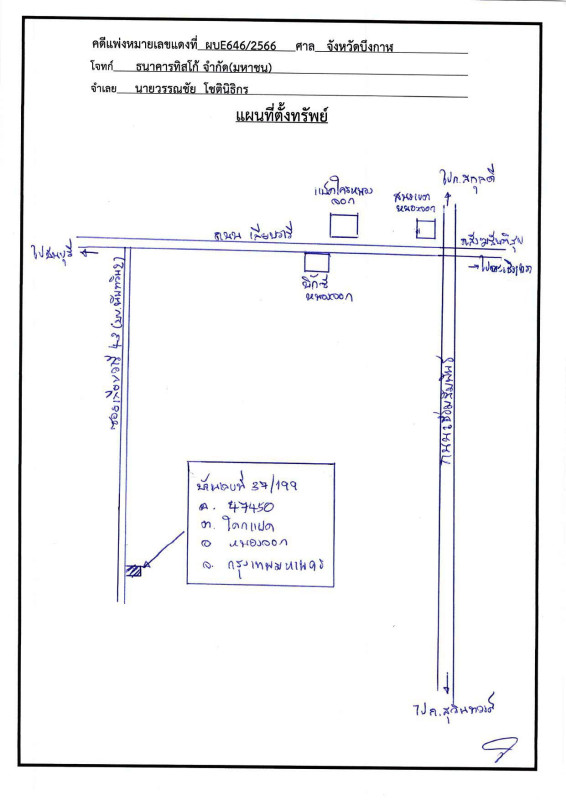 คดีแพ่งหมายเลขแดงที่ ผบE646/2566 ศาล จังหวัดบึงกาฬ
โจทก์ ธนาคารทิสโก้ จำกัด(มหาชน)
จำเลย นายวรรณชัย โชตินิธิกร
แผนที่ตั้งทรัพย์
ไป ถ.สกุลดี
แม็คโครหนอง
จอก
สนง.เขต
หนองจอก
ถนน เลียบวารี
ไปมีนบุรี
ไปฉะเชิงเทรา
บิ๊กซี
หนองจอก
ซอยเลียบวารี 43
ถนนเชื่อมสัมพันธ์
บ้านเลขที่ 37/199
ฉ. 47450
ต. โคกแฝด
อ หนองจอก
จ. กรุงเทพมหานคร
ไป ถ.สุวินทวงศ์